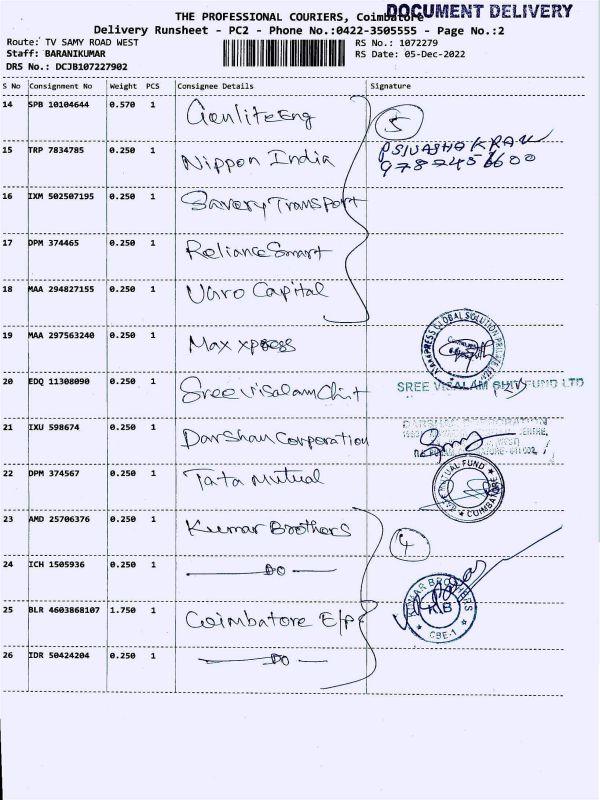 DOCUMENT DELIVERY
THE PROFESSIONAL COURIERS, Coimbatore
Delivery Runsheet - PC2 - Phone No.:0422-3505555 - Page No.:2
Route: TV SAMY ROAD WEST
RS No.: 1072279
Staff: BARANIKUMAR
RS Date: 05-Dec-2022
DRS No.: DCJB107227902
S No Consignment No Weight PCS Consignee Details Signature
14 SPB 10104644 0.570 1
5
15 TRP 7834785 0.250 1 Nippon India
16 IXM 502507195 0.250 1 Savery Transport
17 DPM 374465 0.250 1 Reliance Smart
18 MAA 294827155 0.250 1 Varo Capital
19 MAA 297563240 0.250 1 Max xpress
20 EDQ 11308090 0.250 1 Sree Visalam Chit
SREE VISALAM CHIT FUND LTD
21 IXU 598674 0.250 1 Darshan Corporation
DARSHAN CORPORATION
22 DPM 374567 0.250 1 Tata Mutual
MUTUAL FUND
COIMBATORE
23 AMD 25706376 0.250 1 Kumar Brothers
4
24 ICH 1505936 0.250 1 DO
25 BLR 4603868107 1.750 1 Coimbatore E/P
KUMAR BROTHERS
KB
CBE-1
26 IDR 50424204 0.250 1 DO